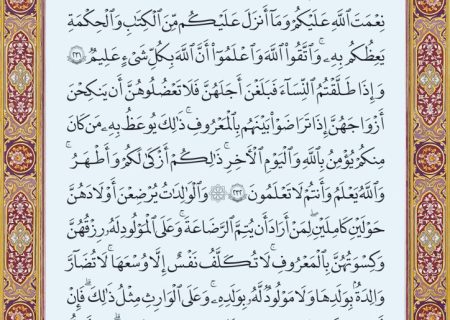 نِعْمَتَ ٱللَّهِ عَلَيْكُمْ وَمَآ أَنزَلَ عَلَيْكُم مِّنَ ٱلْكِتَٰبِ وَٱلْحِكْمَةِ
يَعِظُكُم بِهِۦ ۚ وَٱتَّقُوا۟ ٱللَّهَ وَٱعْلَمُوٓا۟ أَنَّ ٱللَّهَ بِكُلِّ شَىْءٍ عَلِيمٌ ﴿٢٣١﴾
وَإِذَا طَلَّقْتُمُ ٱلنِّسَآءَ فَبَلَغْنَ أَجَلَهُنَّ فَلَا تَعْضُلُوهُنَّ أَن يَنكِحْنَ
أَزْوَٰجَهُنَّ إِذَا تَرَٰضَوْا۟ بَيْنَهُم بِٱلْمَعْرُوفِ ۗ ذَٰلِكَ يُوعَظُ بِهِۦ مَن كَانَ
مِنكُمْ يُؤْمِنُ بِٱللَّهِ وَٱلْيَوْمِ ٱلْءَاخِرِ ۗ ذَٰلِكُمْ أَزْكَىٰ لَكُمْ وَأَطْهَرُ ۗ
وَٱللَّهُ يَعْلَمُ وَأَنتُمْ لَا تَعْلَمُونَ ﴿٢٣٢﴾ ۞ وَٱلْوَٰلِدَٰتُ يُرْضِعْنَ أَوْلَٰدَهُنَّ
حَوْلَيْنِ كَامِلَيْنِ ۖ لِمَنْ أَرَادَ أَن يُتِمَّ ٱلرَّضَاعَةَ ۚ وَعَلَى ٱلْمَوْلُودِ لَهُۥ رِزْقُهُنَّ
وَكِسْوَتُهُنَّ بِٱلْمَعْرُوفِ ۚ لَا تُكَلَّفُ نَفْسٌ إِلَّا وُسْعَهَا ۚ لَا تُضَآرَّ
وَٰلِدَةٌۢ بِوَلَدِهَا وَلَا مَوْلُودٌ لَّهُۥ بِوَلَدِهِۦ ۚ وَعَلَى ٱلْوَارِثِ مِثْلُ ذَٰلِكَ ۗ فَإِنْ